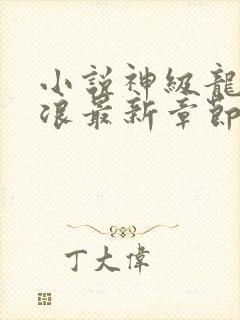 小説神級龍
浪最新章節
丁大偉